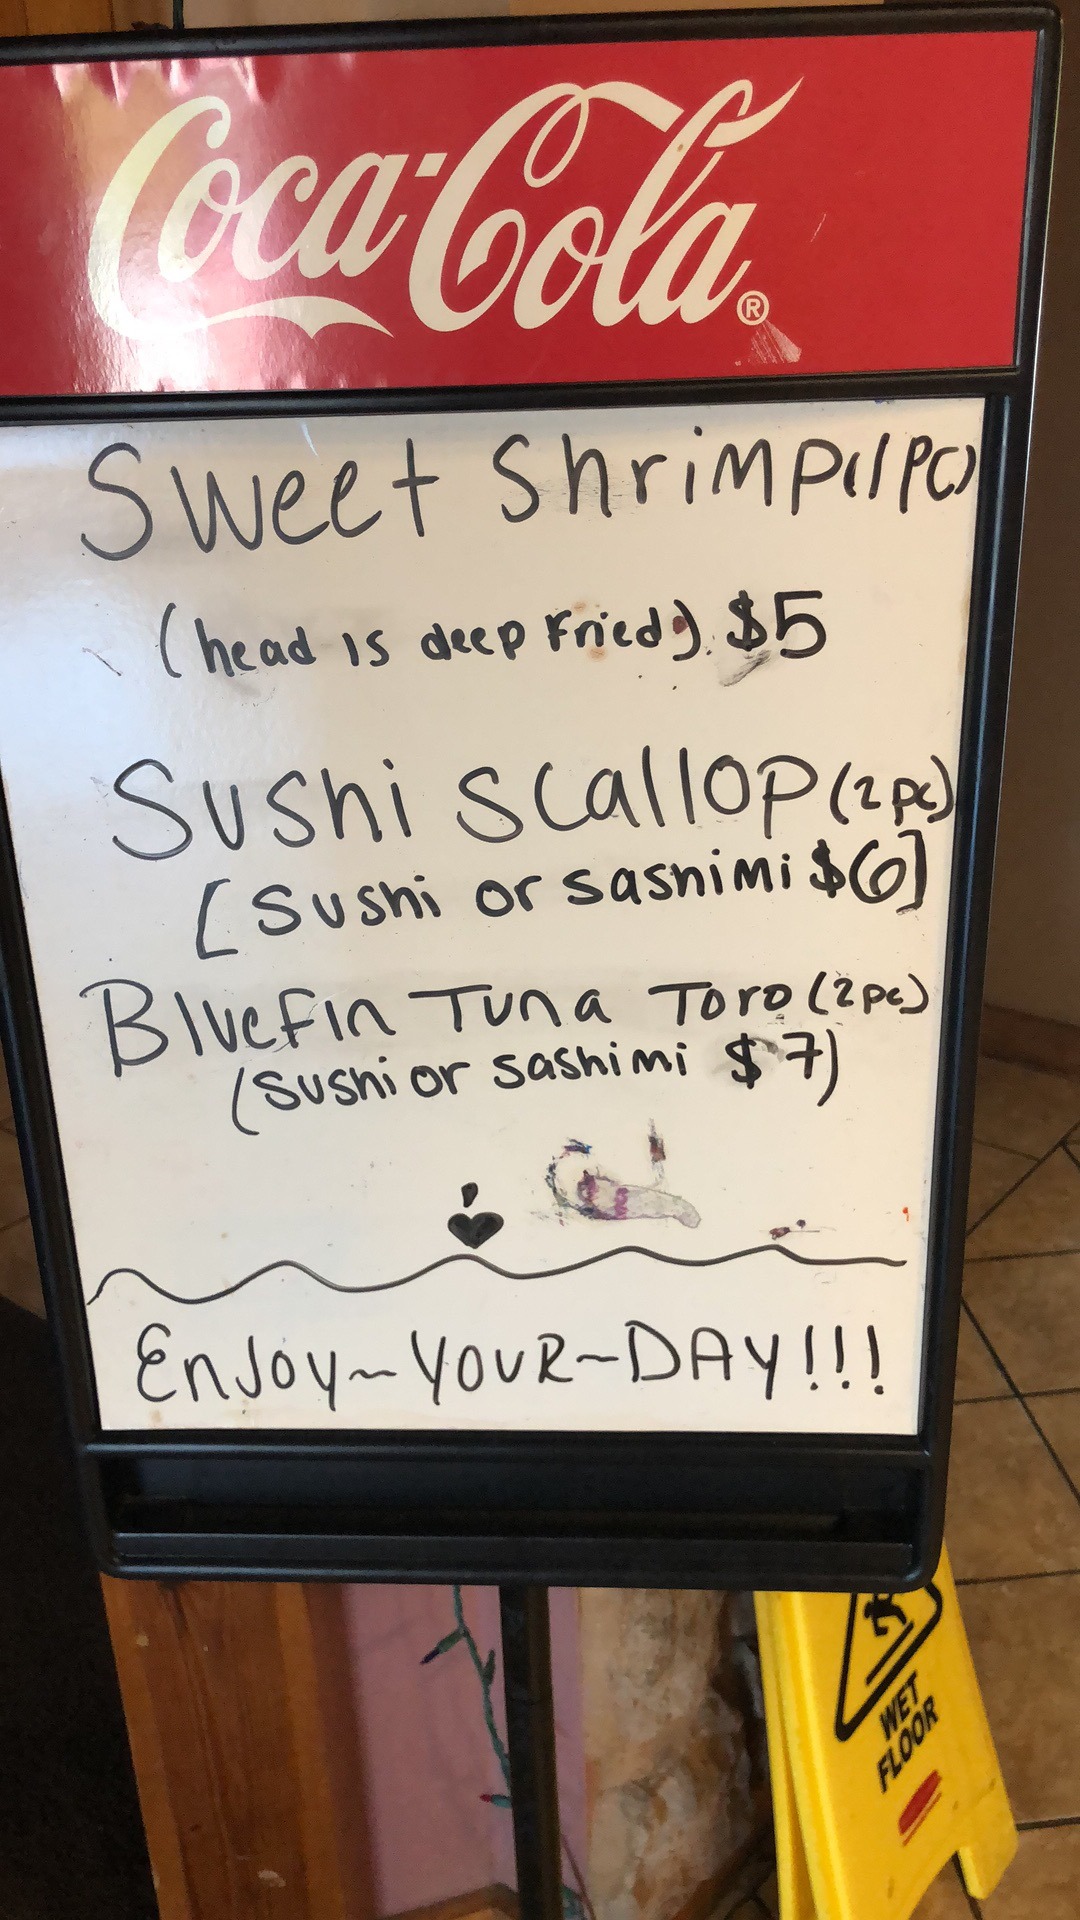 Coca-Cola®
Sweet Shrimp (1pc)
(head is deep fried) $5
Sushi Scallop (2pc)
[Sushi or sashimi $6]
Bluefin Tuna Toro (2pc)
(Sushi or Sashimi $7)
Enjoy~YOUR~DAY!!!
WET
FLOOR